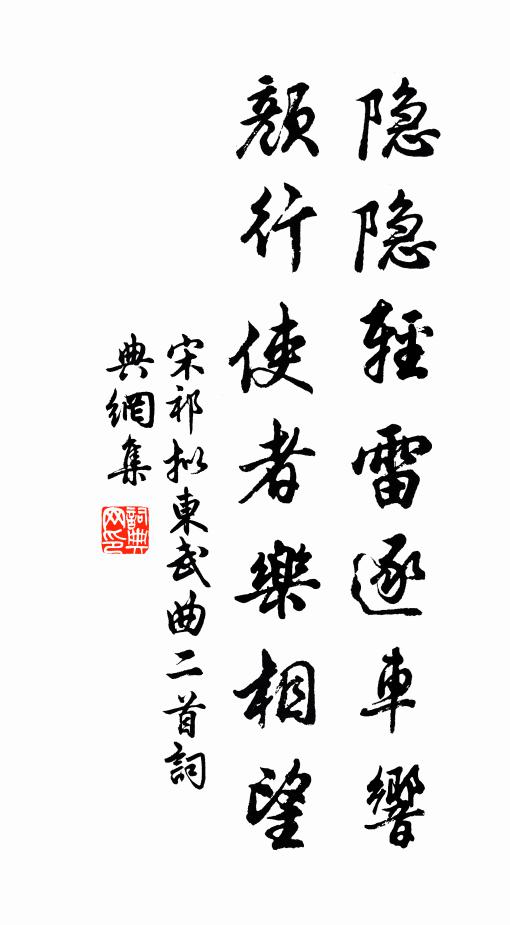 隐隐輕雷逐車響
顏行使者樂相望
宋祁拟東武曲二首詞
典網集
詞典
网印